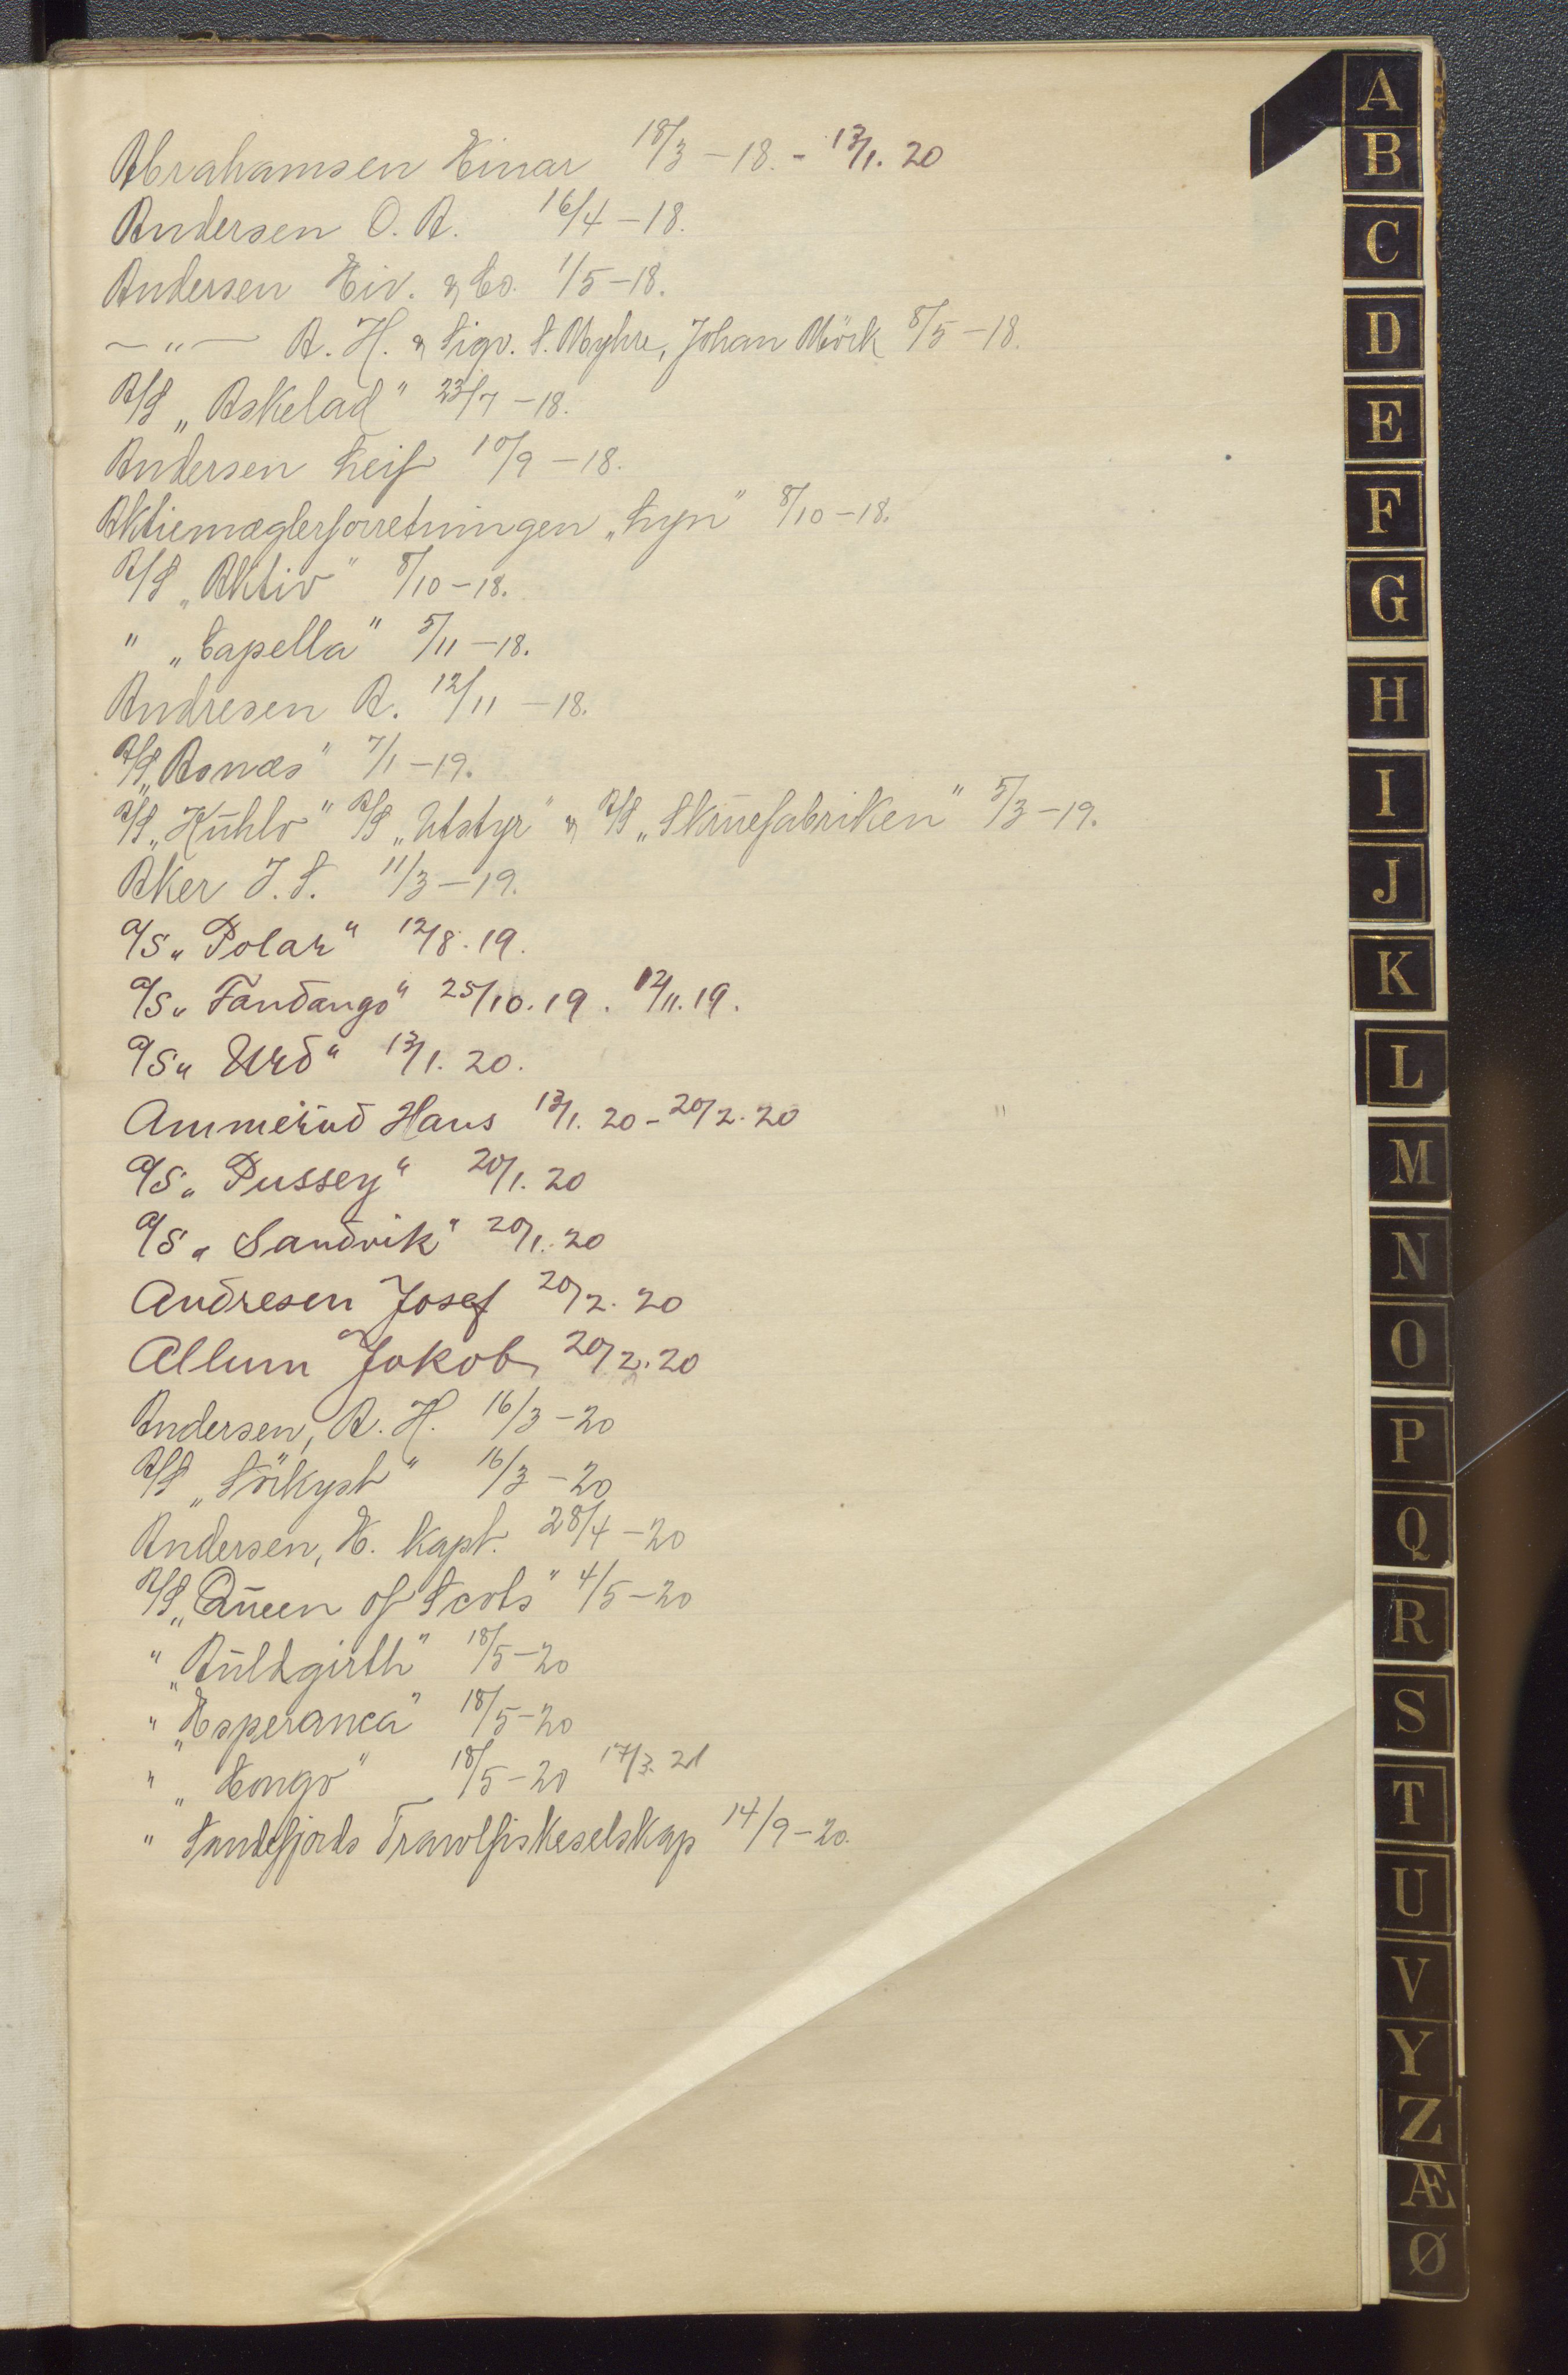 Abrahamsen Einar 18/3 – 18. - 13/1. 20
Andersen O. A. 16/4 – 18.
Andersen Eiv. & Co. 1/5 – 18.
— " — A. H. & Sigv. S. Myhre, Johan Mörk 8/5 – 18.
A/S „Askelad" 23/7 – 18.
Andersen Leif 10/9 – 18.
Aktiemæglerforretningen „Lyn" 8/10 – 18.
A/S „Aktiv" 8/10 – 18.
" „Capella" 5/11 – 18.
Andresen A. 12/11 – 18.
A/S „Asnæs" 7/1 – 19.
A/S „Kuhlo" A/S „Utstyr" & A/S „Skruefabriken" 5/3 – 19.
Aker J. S. 11/3 – 19.
A/S „Polar" 12/8. 19.
A/S „Fandango" 25/10. 19. 12/11. 19.
A/S „Urd" 13/1. 20.
Ammerud Hans 13/1. 20 - 20/2. 20
A/S „Pussey" 20/1. 20
A/S „Sandvik" 20/1. 20
Andresen Josef 20/2. 20
Allum Jakob 20/2. 20
Andersen, A. H. 16/3 – 20
A/S „Sörkyst" 16/3 – 20
Andersen, H. Kapt. 28/4 – 20
A/S „Queen of Scots" 4/5 – 20
" „Auldgirth" 18/5 – 20
" „Esperanca" 18/5 – 20
" „Congo" 18/5 – 20 17/3. 21
" Sandefjords Trawlfiskeselskap 14/9 – 20.
A
B
C
D
E
F
G
H
I
J
K
L
M
N
O
P
Q
R
S
T
U
V
Y
Z
Æ
Ø